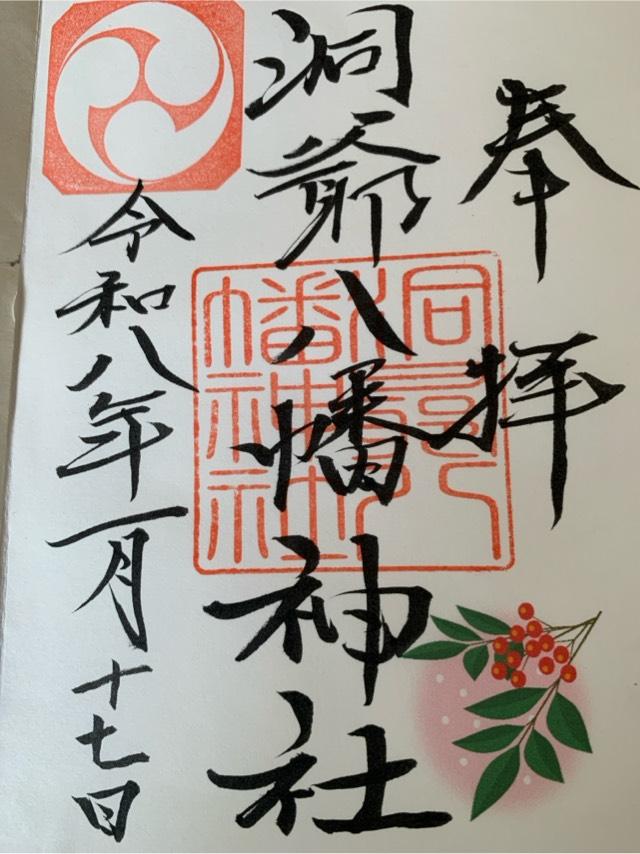 奉拝
洞爺八幡神社
洞爺八幡神社
令和八年一月十七日